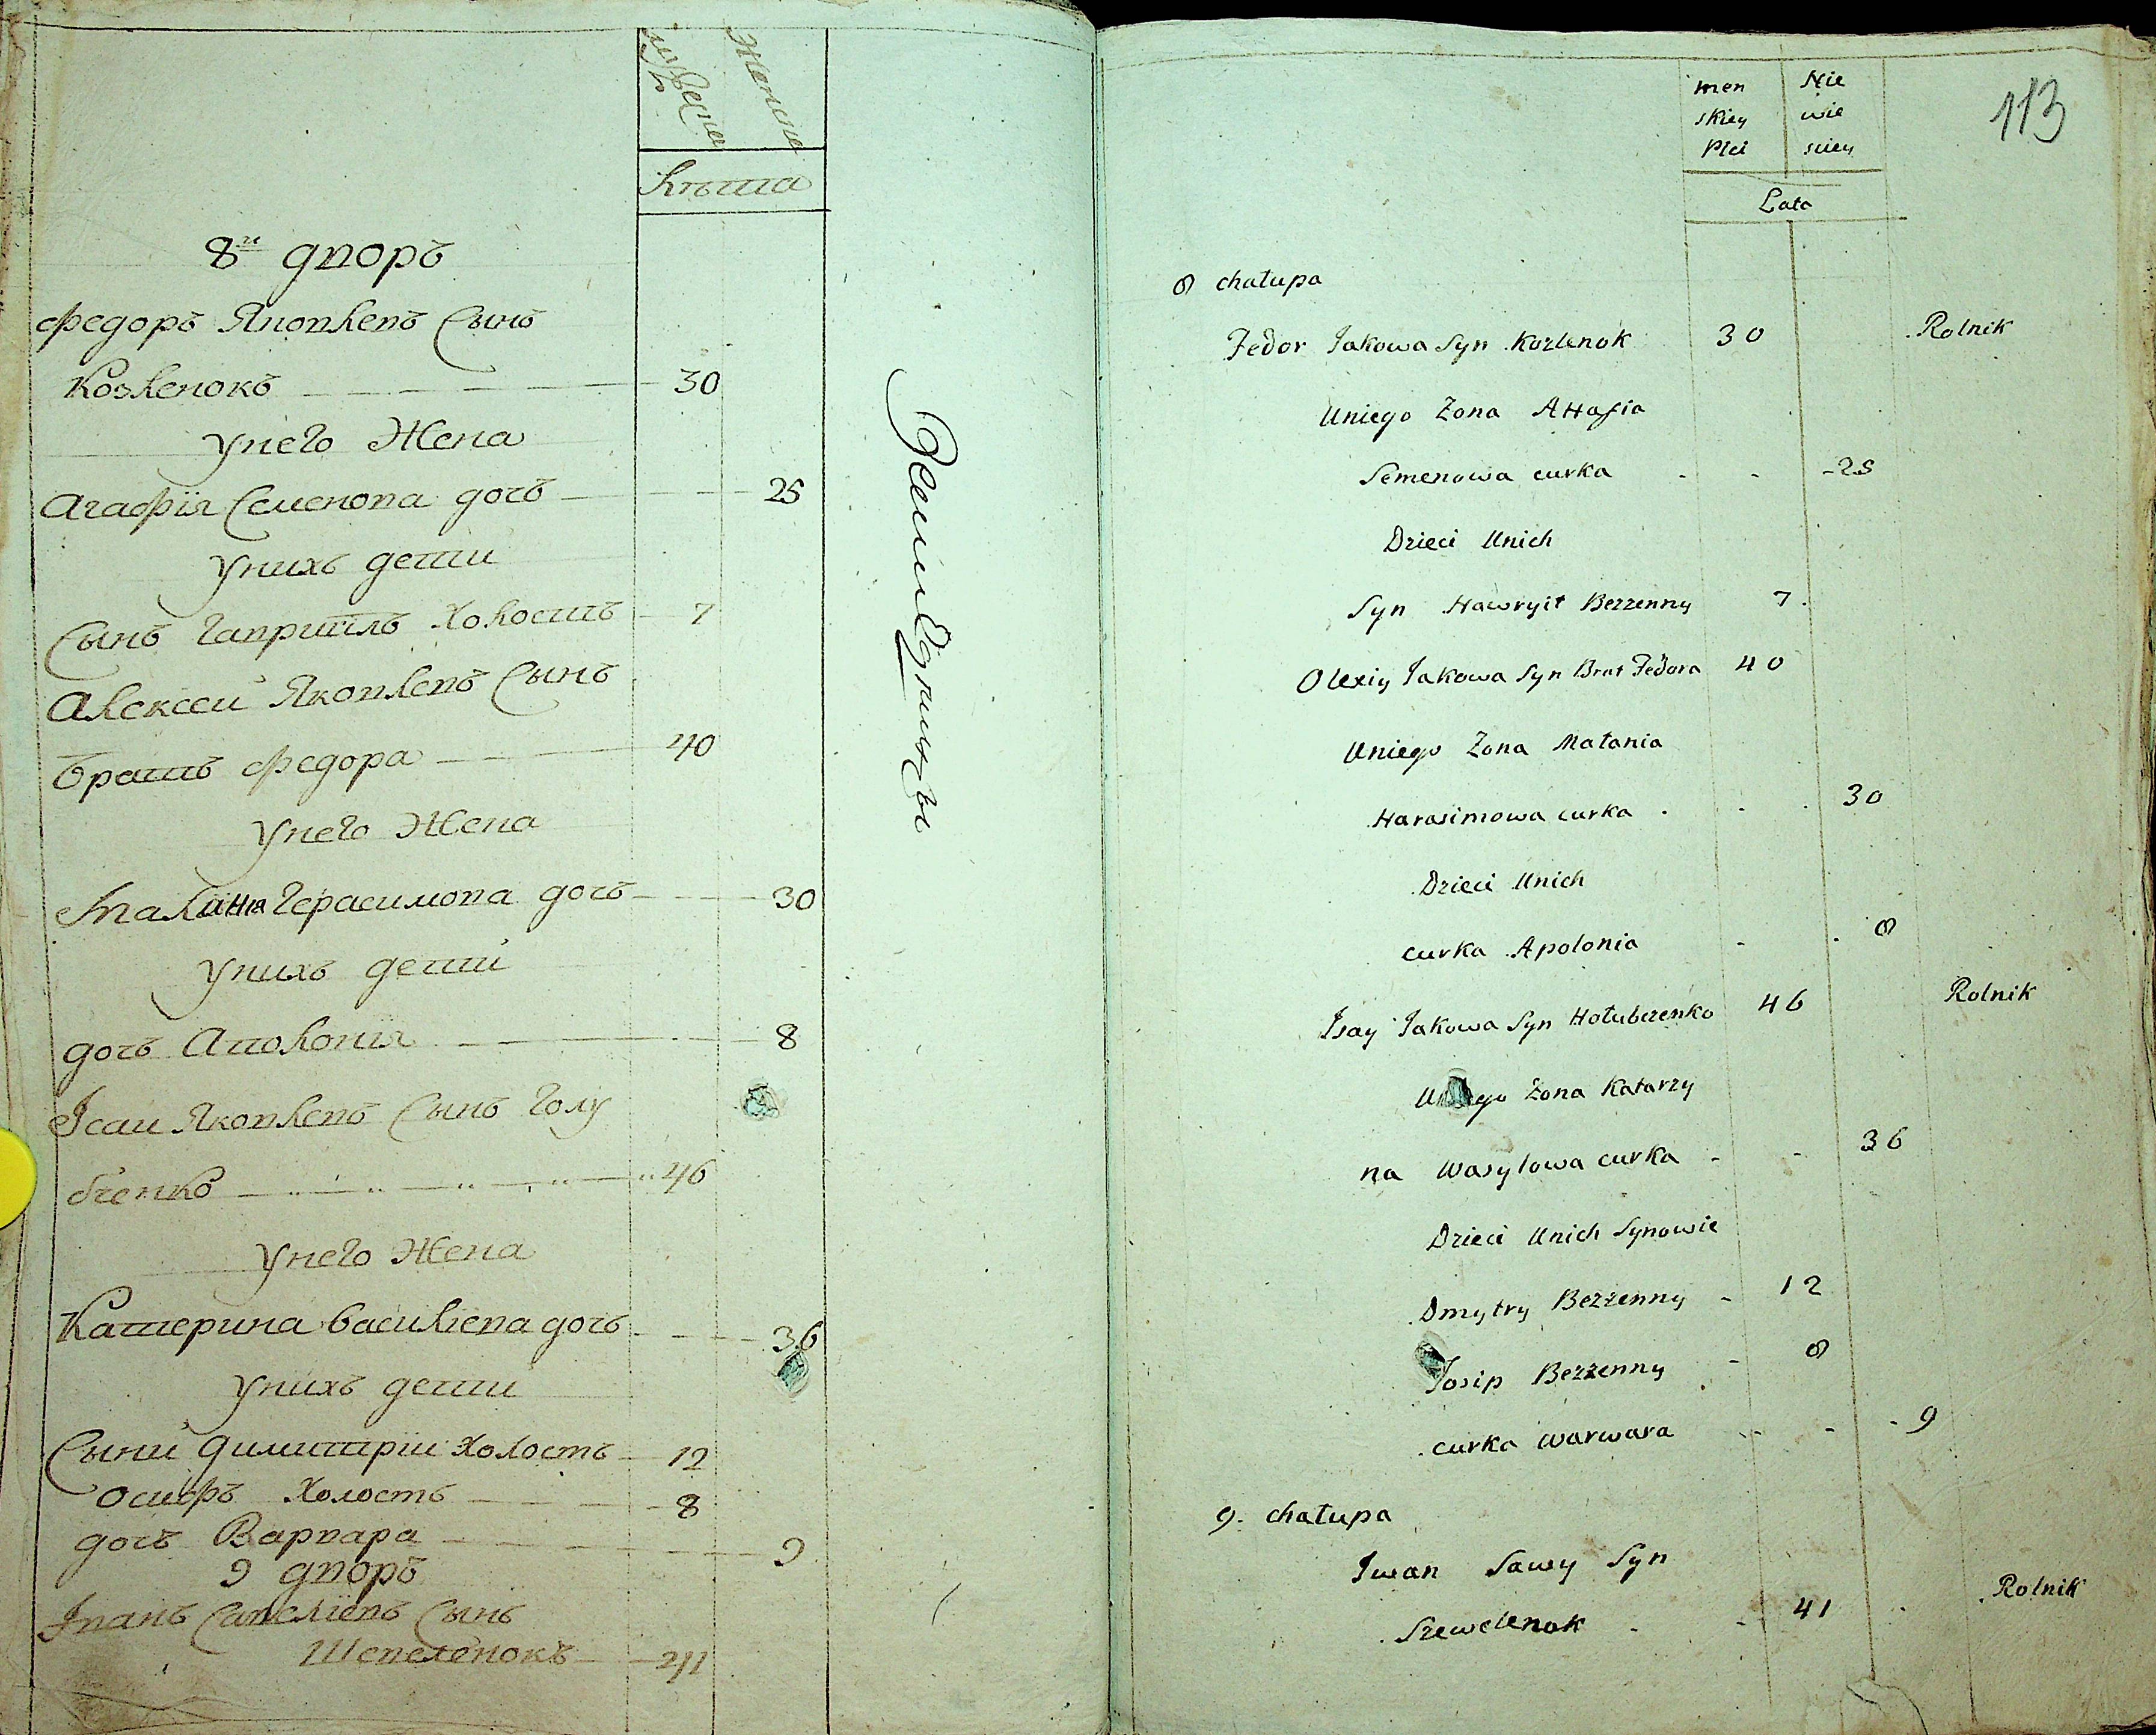 мужеска
женска
Лѣта
8й дворъ
Федоръ Яковлевъ Сынъ
Козленокъ 30
Унего Жена
Агафія Семенова дочь 25
Унихъ дети
Сынъ Гавриилъ Холостъ 7
Алексеи Яковлевъ Сынъ
Братъ Федора 40
Унего Жена
Маланія Герасимова дочь 30
Унихъ дети
дочь Аполонія 8
Ісаи Яковлевъ Сынъ Голу
бченко 46
Унего Жена
Катерина Василіева дочь 36
Унихъ дети
Сыни Димитріи Холостъ 12
Осифъ Холостъ 8
дочь Варвара 9
9 дворъ
Іванъ Савеліевъ Сынъ
Шевеленокъ 41
113
men Nie
skiey wie
Płci sciey
Lata
8 chałupa
Fedor Jakowa Syn Kozlenok 30 Rolnik
Uniego Zona AHafia
Semenowa curka 25
Dzieci Unich
Syn Hawryił Bezzenny 7
Olexiy Jakowa Syn Brat Fedora 40
Uniego Zona Małania
Harasimowa curka 30
Dzieci Unich
curka Apolonia 8
Isay Jakowa Syn Hołubczenko 46 Rolnik
Uniego Zona Katarzy
na Wasylowa curka 36
Dzieci Unich Synowie
Dmytry Bezzenny 12
Josip Bezzenny 8
curka Warwara 9
9. chałupa
Iwan Sawy Syn
Szewelenok 41 Rolnik